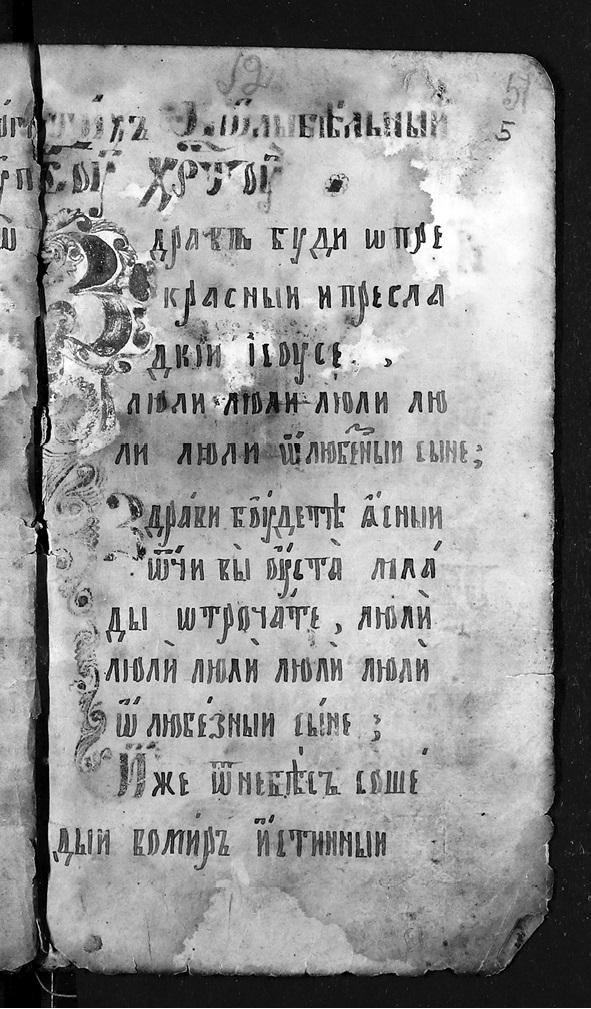 52
51
стихъ колыбѣльный
5
хрⷭ҇тоу
Здравъ буди ѡ пре
красный и пресла
дкїй їсоусе ,
люли люли люли лю
ли люли ѿ любеⷥный сыне ;
Здрави боудетѣ ꙗсный
ѿчи вы оуста мла
ды ѡтрочате , люли
люли люли люли люли
ѿ любезный сыне ;
Иже ѿ небесъ соше
дый вомиръ истинный